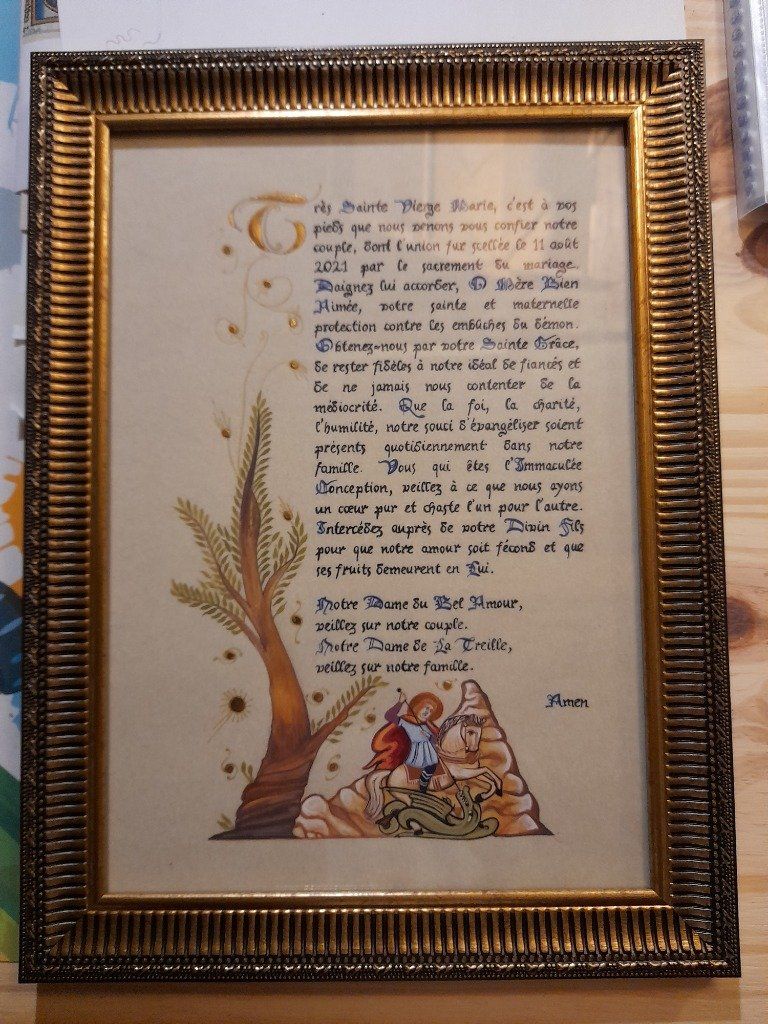 Très Sainte Vierge Marie, c'est à vos
pieds que nous venons vous confier notre
couple, dont l'union fur scellée le 11 août
2021 par le sacrement du mariage.
Daignez lui accorder, O Mère Bien
Aimée, votre sainte et maternelle
protection contre les embûches du démon.
Obtenez-nous par votre Sainte Grâce,
de rester fidèles à notre idéal de fiancés et
de ne jamais nous contenter de la
médiocrité. Que la foi, la charité,
l'humilité, notre souci d'évangéliser soient
présents quotidiennement dans notre
famille. Vous qui êtes l'Immaculée
Conception, veillez à ce que nous ayons
un cœur pur et chaste l'un pour l'autre.
Intercédez auprès de votre Divin Fils
pour que notre amour soit fécond et que
ses fruits demeurent en Lui.
Notre Dame du Bel Amour,
veillez sur notre couple.
Notre Dame de La Treille,
veillez sur notre famille.
Amen